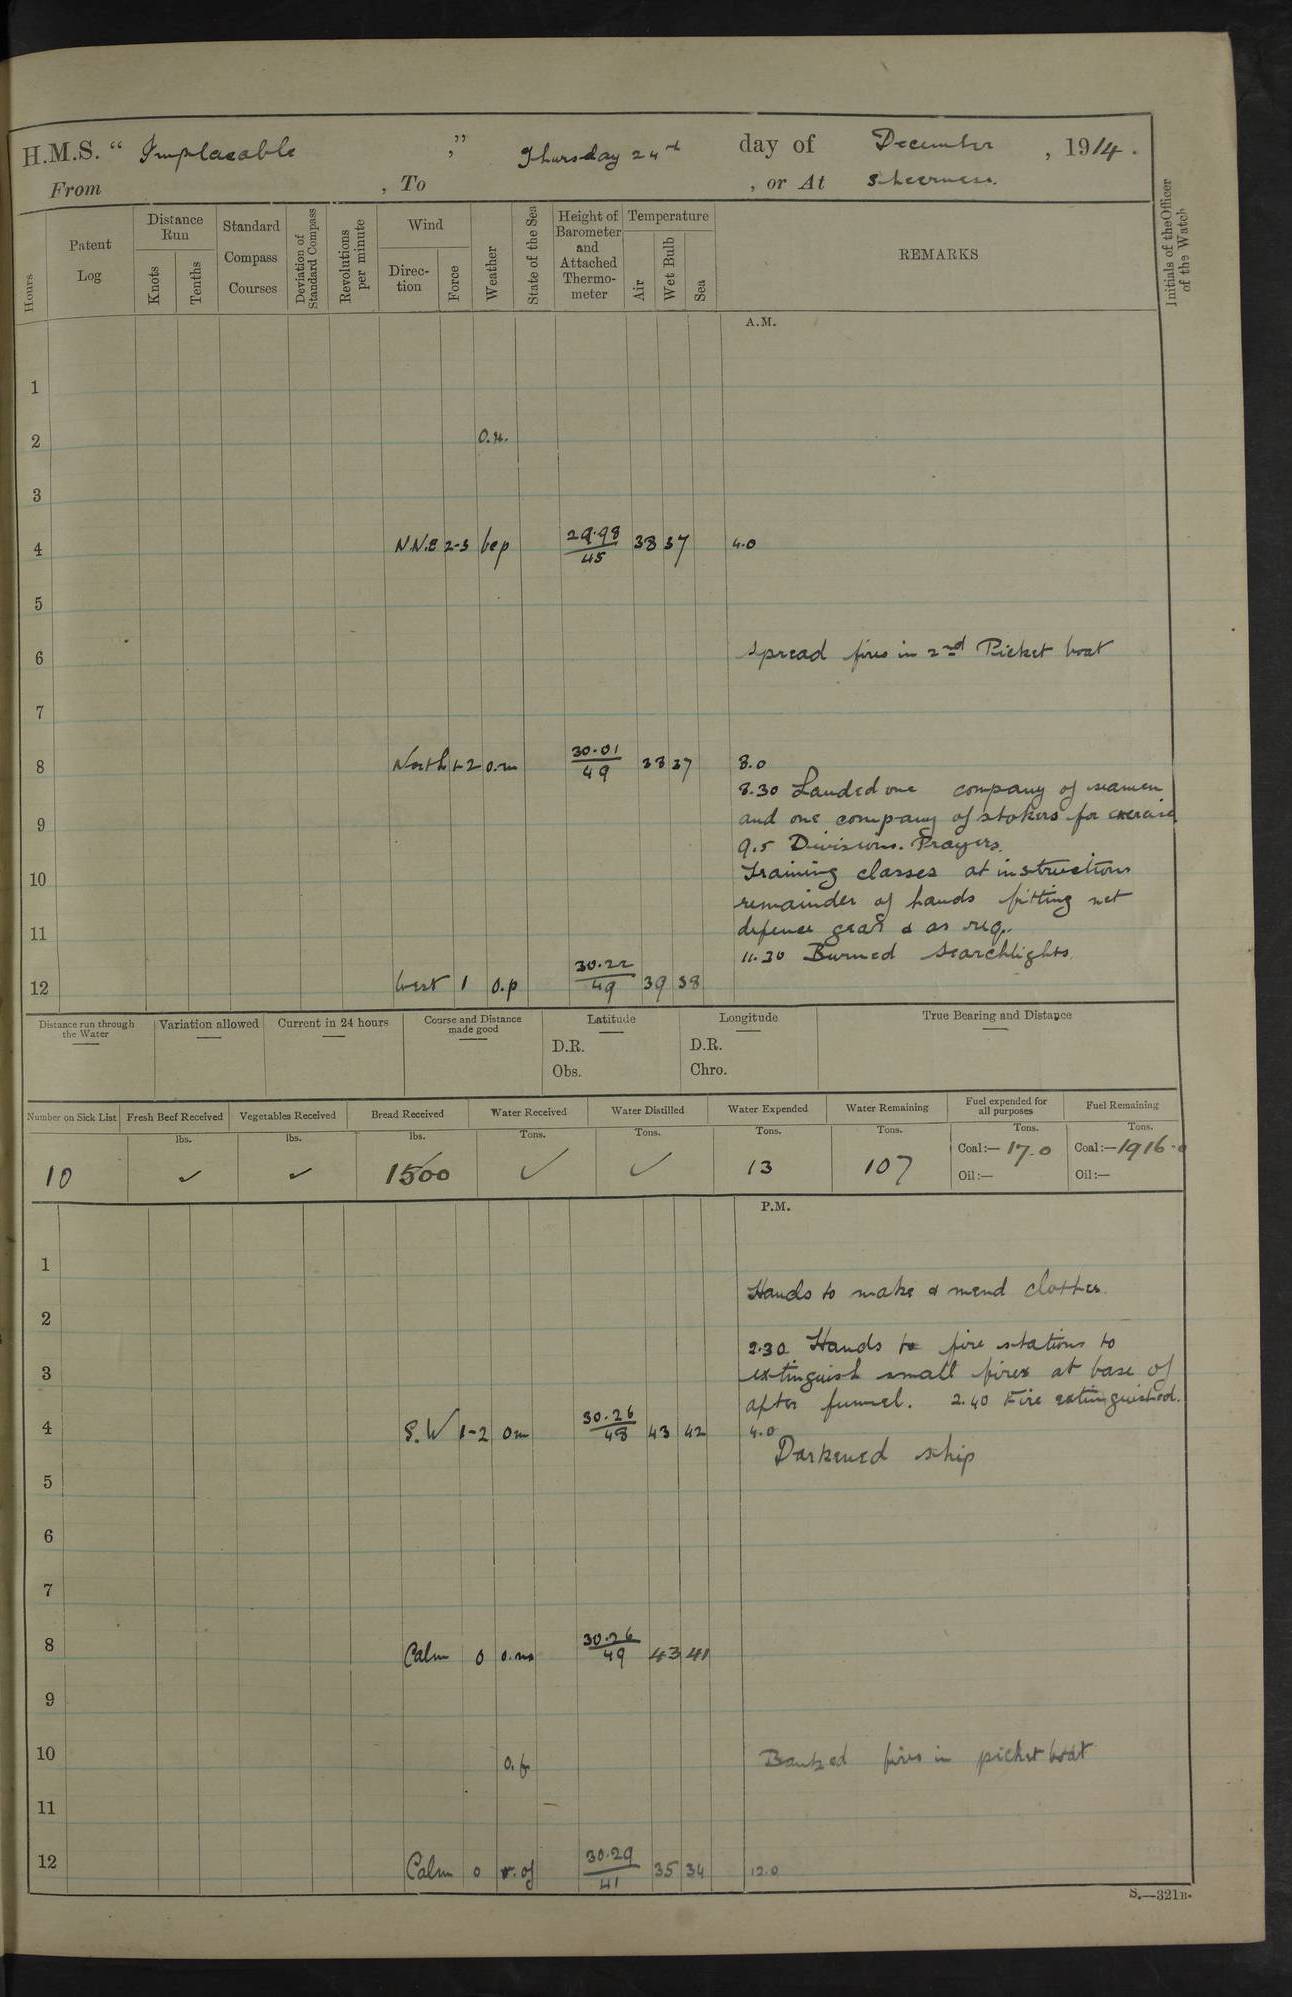 H.M.S. “ Implacable ,” Thursday 24th day of December , 1914.
From , To , or At Sheerness.
Hours
Patent Log
Distance Run
Knots
Tenths
Standard Compass Courses
Deviation of Standard Compass
Revolutions per minute
Wind
Direction
Force
Weather
State of the Sea
Height of Barometer and Attached Thermometer
Temperature
Air
Wet Bulb
Sea
REMARKS
Initials of the Officer of the Watch
A.M.
1
2
3
4 N.N.E 2-3 bcp 29.98/45 38 37 4.0
5
6 Spread fires in 2nd Picket boat
7
8 North 1-2 o.m 30.01/49 38 37 8.0
8.30 Landed one company of seamen
9 and one company of stokers for exercise
9.5 Divisions. Prayers.
10 Training classes at instructions
remainder of hands fitting net
11 defence gear & as req.
11.30 Burned Searchlights.
12 West 1 o.p 30.22/49 39 38
Distance run through the Water
Variation allowed
Current in 24 hours
Course and Distance made good
Latitude
D.R.
Obs.
Longitude
D.R.
Chro.
True Bearing and Distance
Number on Sick List Fresh Beef Received Vegetables Received Bread Received Water Received Water Distilled Water Expended Water Remaining Fuel expended for all purposes Fuel Remaining
lbs. lbs. lbs. Tons. Tons. Tons. Tons. Tons. Tons.
10 ✓ ✓ 1500 ✓ ✓ 13 107 Coal:— 17.0 Coal:— 1916.0
Oil:— Oil:—
P.M.
1
Hands to make & mend clothes.
2
2.30 Hands to fire stations to
3 extinguish small fires at base of
after funnel. 2.40 Fire extinguished.
4 S.W 1-2 om 30.26/48 43 42 4.0
Darkened ship
5
6
7
8 Calm 0 o.m 30.26/49 43 41
9
10 Banked fires in picket boat
11
12 Calm 0 30.29/41 35 34 12.0
S.—321B.